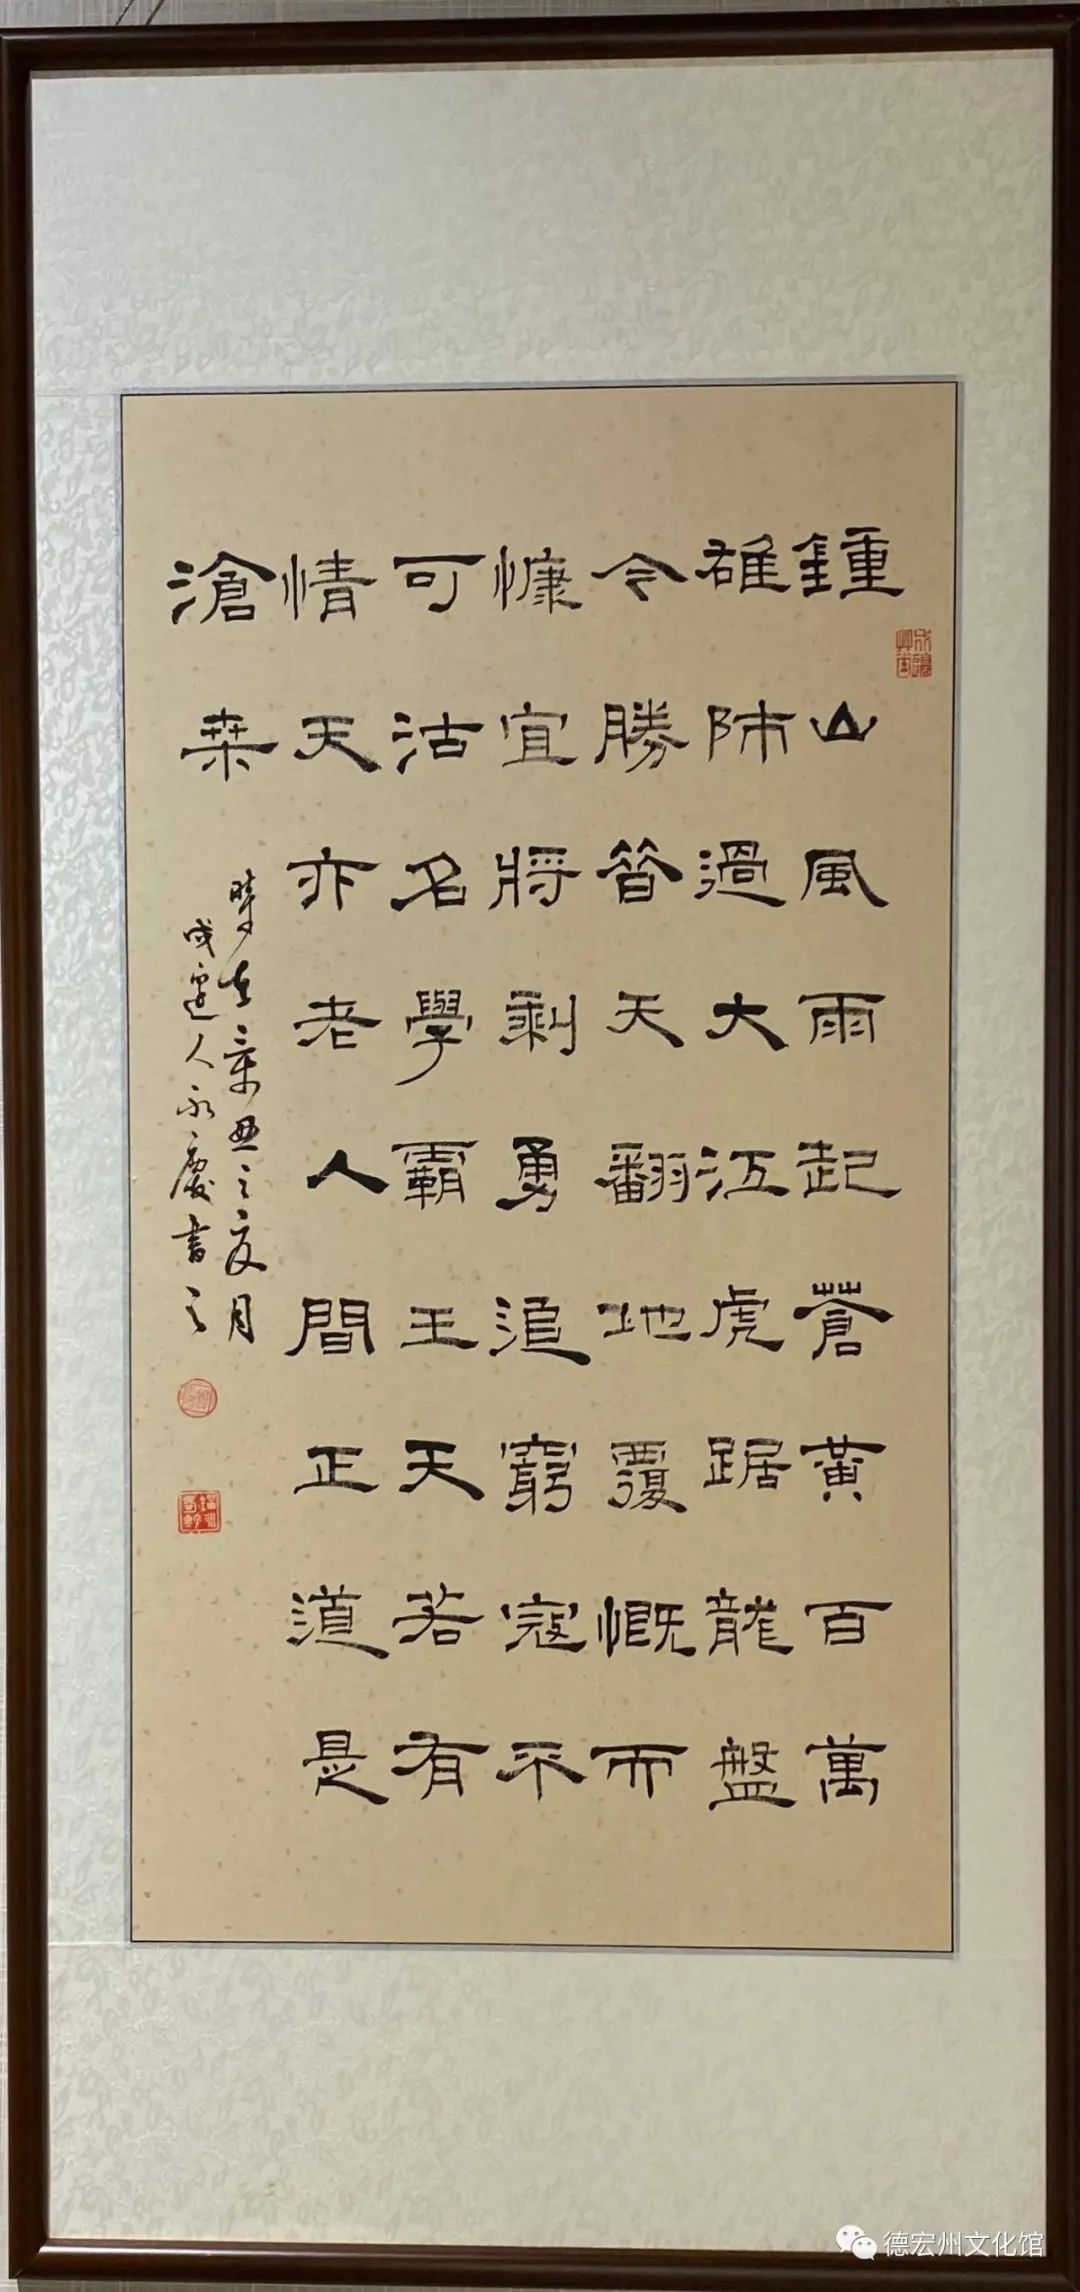 鍾山風雨起蒼黃百萬
雄師過大江虎踞龍盤
今勝昔天翻地覆慨而
慷宜將剩勇追窮寇不
可沽名學霸王天若有
情天亦老人間正道是
滄桑
時在辛丑之夏月
戍邊人永慶書之
德宏州文化馆